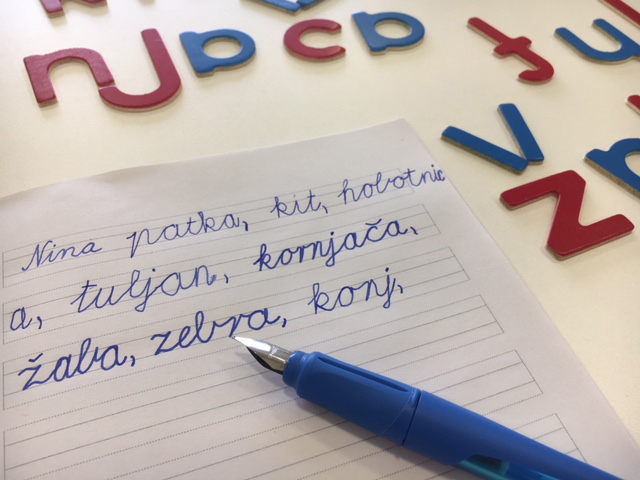 Nina patka, kit, hobotnic
a, tuljan, kornjača,
žaba, zebra, konj,